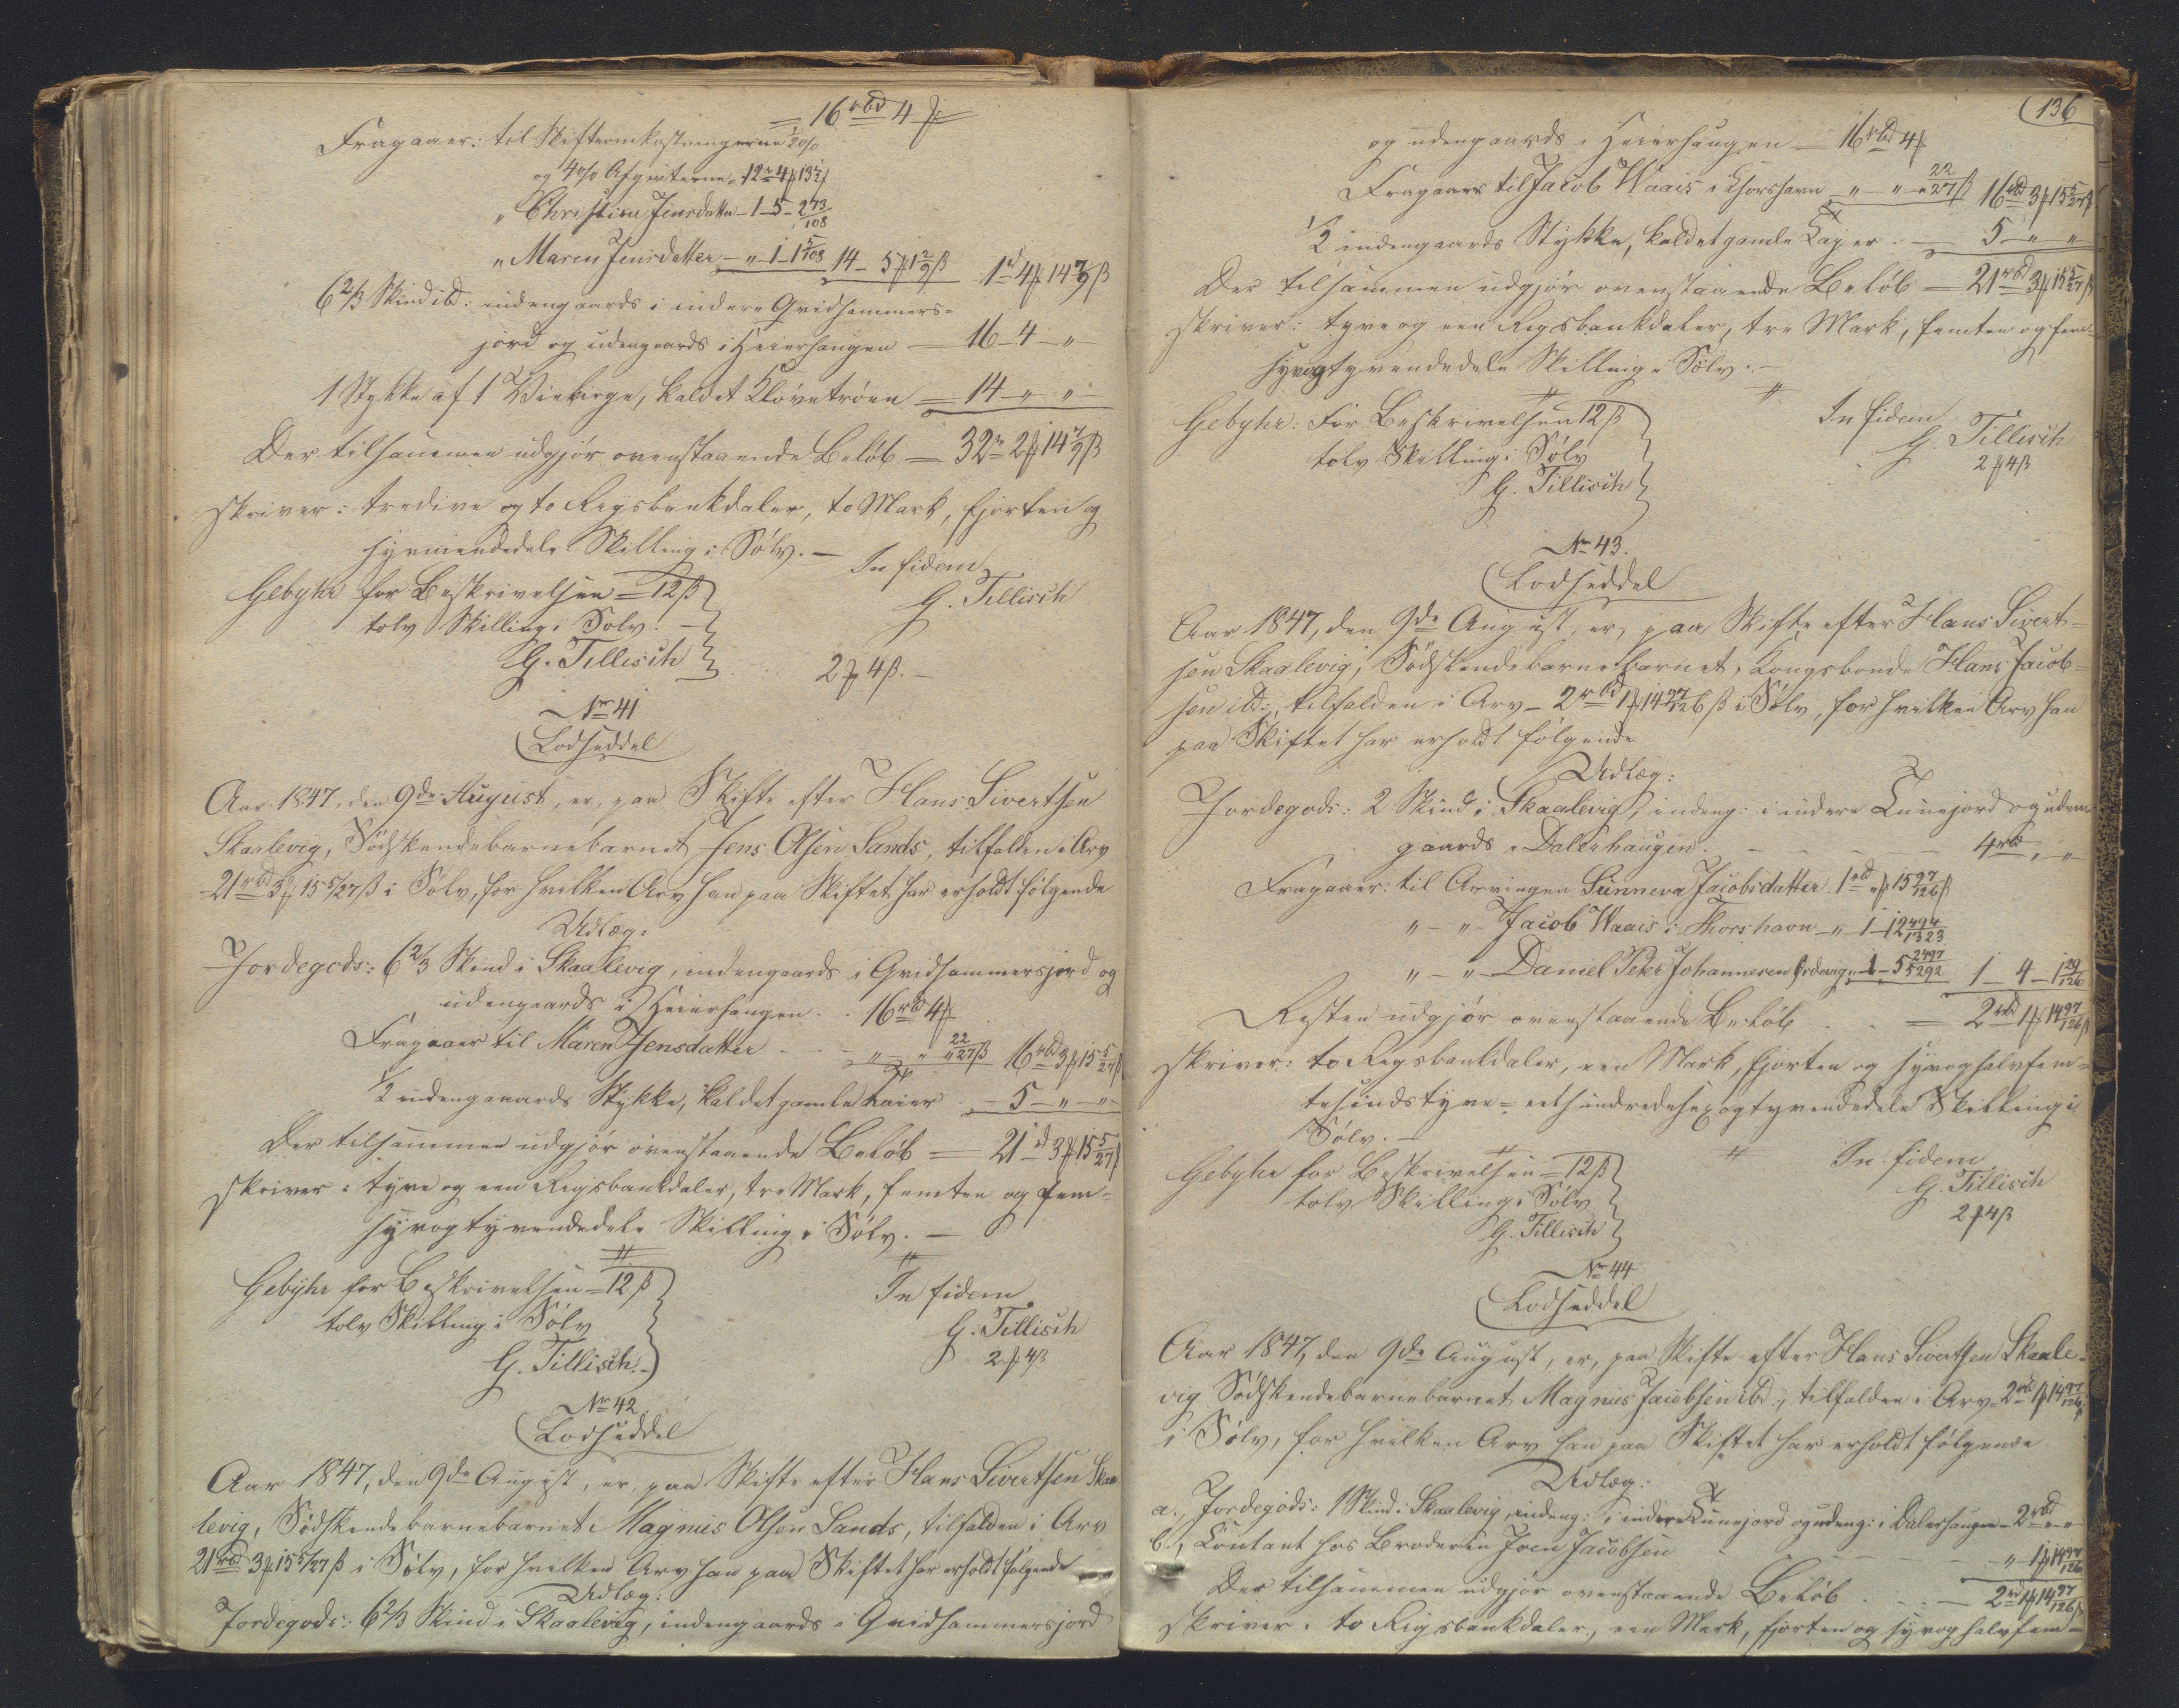 = 16 rbd 4 ƒ
Fragaaer: til Skifteomkostningerne 2%
og 4% Afgifterne = 12 r 4 ƒ 13½ ß
" Christine Jensdatter – 1 – 5 – 2 73/108
" Maren Jensdatter – " – 1 – 1 5/108 14 – 5 ƒ 1 2/9 ß 1 rd 4 ƒ 14 7/9 ß
6 2/3 Skind ibd: indengaards i indere Qvidhammers=
jord og udengaards i Heierhaugen – 16 – 4 – "
1 Stykke af 1 kaldet Kløvetrøen = 14 – " "
Der tilsammen udgjør ovenstaaende Beløb = 32 r 2 ƒ 14 7/9 ß
skriver: tredive og to Rigsbankdaler, to Mark, fjorten og
syvniendedele Skilling i Sølv. –
In fidem
Gebyhr for Beskrivelsen = 12 ß
G. Tillisch
tolv Skilling i Sølv. –
G. Tillisch
2 ƒ 4 ß. –
No 41
Lodseddel
Aar 1847, den 9de August, er, paa Skifte efter Hans Sivertsen
Skaalevig, Sødskendebarnebarnet Jens Olsen Sands, tilfalden i Arv
21 rbd 3 ƒ 15 5/27 ß i Sølv, for hvilken Arv han paa Skiftet har erholdt følgende
Udlæg:
Jordegods: 6 2/3 Skind i Skaalevig, indengaards i Qvidhammersjord og
udengaards i Heierhaugen . . 16 rbd 4 ƒ
Fragaaer til Maren Jensdatter . . – " – " – 22/27 ß 16 rbd 3 ƒ 15 5/27 ß
1/2 indengaards Stykke, kaldet gamle Kaier – 5 – " – "
Der tilsammen udgjør ovenstaaende Beløb = 21 rd 3 ƒ 15 5/27 ß
skriver: tyve og een Rigsbankdaler, tre Mark, femten og fem=
syvogtyvendedele Skilling i Sølv. –
Gebyhr for Beskrivelsen = 12 ß
In fidem
tolv Skilling i Sølv
G. Tillisch
G. Tillisch. –
2 ƒ 4 ß
No 42.
Lodseddel
Aar 1847, den 9de August, er, paa Skifte efter Hans Sivertsen Skaa
levig, Sødskendebarnebarnet Magnus Olsen Sands, tilfalden i Arv
21 rbd 3 ƒ 15 5/27 ß i Sølv, for hvilken Arv han paa Skiftet har erholdt følgende
Udlæg:
Jordegods: 6 2/3 Skind i Skaalevig, indengaards i Qvidhammersjord
136
og udengaards i Heierhaugen – 16 rbd 4 ƒ
Fragaaer til Jacob Waais i Thorshavn – " – " – 22/27 ß 16 rbd 3 ƒ 15 5/27 ß
1/2 indengaards Stykke, kaldet gamle Kajer . – 5 – " "
Der tilsammen udgjør ovenstaaende Beløb = 21 rbd 3 ƒ 15 5/27 ß
skriver: tyve og een Rigsbankdaler, tre Mark, femten og fem=
syvogtyvendedele Skilling i Sølv. –
Gebyhr: For Beskrivelsen 12 ß
In fidem
tolv Skilling i Sølv
G. Tillisch
G. Tillisch
2 ƒ 4 ß
No 43.
Lodseddel
Aar 1847, den 9de August, er, paa Skifte efter Hans Sivert=
sen Skaalevig, Sødskendebarnebarnet, Kongsbonde Hans Jacob=
sen ibd:, tilfalden i Arv – 2 rbd 1 ƒ 14 97/126 ß i Sølv, for hvilken Arv han
paa Skiftet har erholdt følgende
Udlæg:
Jordegods: 2 Skind i Skaalevig, indeng: i indere Tunejord og uden=
gaards i Dalerhaugen . – – – – 4 rbd, "
Fragaaer: til Arvingen Sunneva Jacobsdatter 1 rbd " ƒ 15 97/126 ß
" – " – Jacob Waais i Thorshavn – " 1 – 12 494/1323
" – " – Daniel Peter Johannesen Ørdevig " – 1 – 5 2497/5292 1 – 4 – 1 29/126
Resten udgjør ovenstaaende Beløb . . = 2 rbd 1 ƒ 14 97/126 ß
skriver: to Rigsbankdaler, een Mark, fjorten og syvoghalvfem=
tesindstyve=eethundredesexogtyvendedele Skilling i
Sølv. –
Gebyhr for Beskrivelsen = 12 ß
In fidem
tolv Skilling i Sølv
G. Tillisch
G. Tillisch
2 ƒ 4 ß
No 44
Lodseddel
Aar 1847, den 9de August, er, paa Skifte efter Hans Sivertsen Skaale=
vig Sødskendebarnebarnet Magnus Jacobsen ibd:, tilfalden i Arv = 2 rbd 1 ƒ 14 97/126 ß
i Sølv, for hvilken Arv han paa Skiftet har erholdt følgende
Udlæg:
a., Jordegods: 1 Skind i Skaalevig, indeng: i indere Tunejord og udeng: i Dalerhaugen – 2 rbd " "
b., Contant hos Broderen Joen Jacobsen – – – – " 1 ƒ 14 97/126
Der tilsammen udgjør ovenstaaende Beløb . . – 2 rd 1 ƒ 14 97/126 ß
skriver: to Rigsbankdaler, een Mark, fjorten og syvoghalvfem=